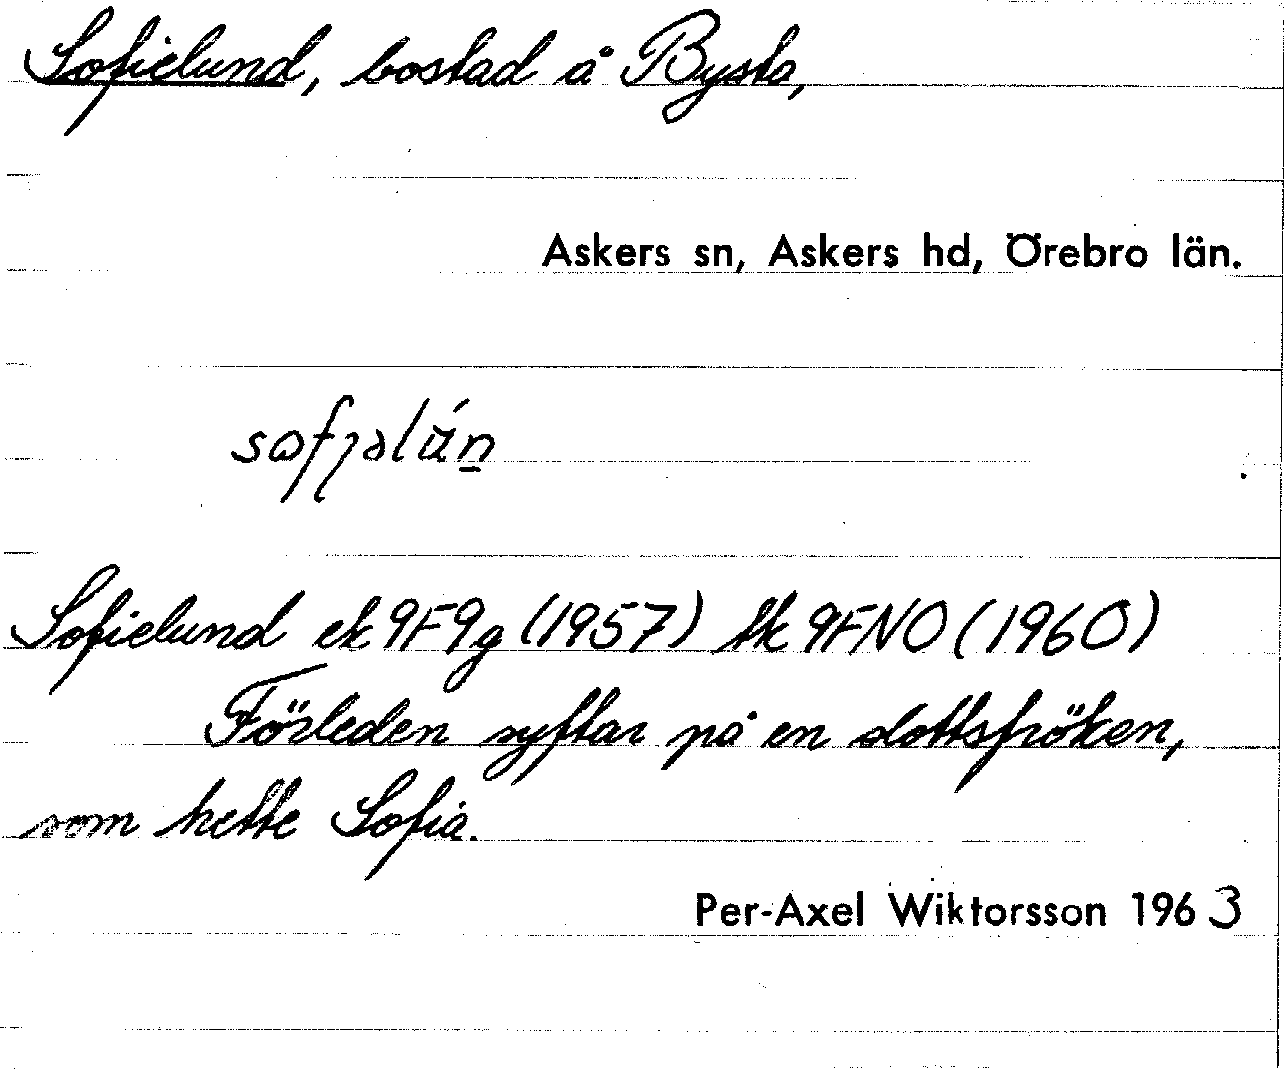 Sofielund, bostad å Bysta,
Askers sn, Askers hd, Örebro län.
Sofielund ek 9F9g (1957) tk 9FNO (1960)
Förleden syftar på en slottsfröken,
som hette Sofia.
Per-Axel Wiktorsson 1963